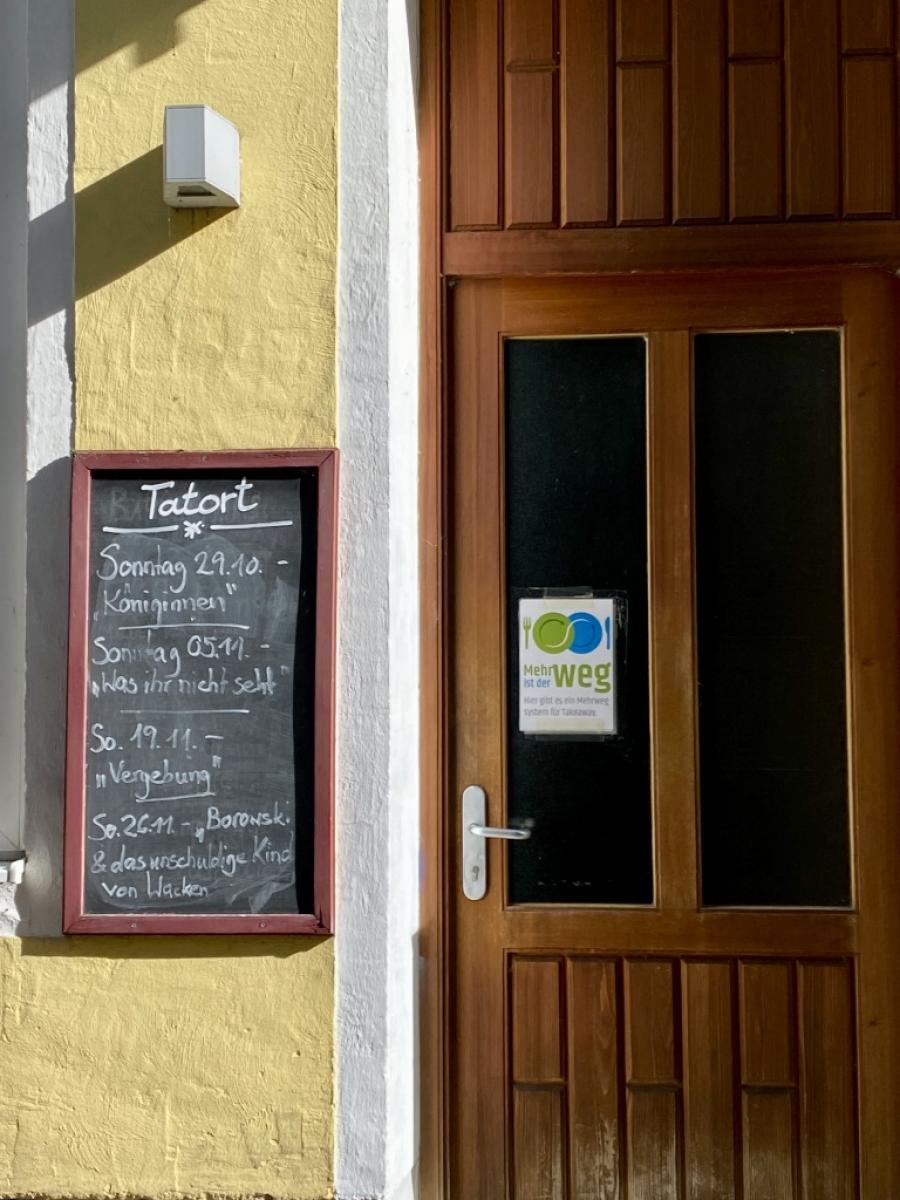 Tatort
Sonntag 29.10. -
„Königinnen"
Sonntag 05.11. -
„Was ihr nicht seht"
So. 19.11. -
„Vergebung"
So. 26.11. - „Borowski
& das unschuldige Kind
von Wacken
Mehr
ist der weg
Hier gibt es ein Mehrweg-
system für Takeaway.